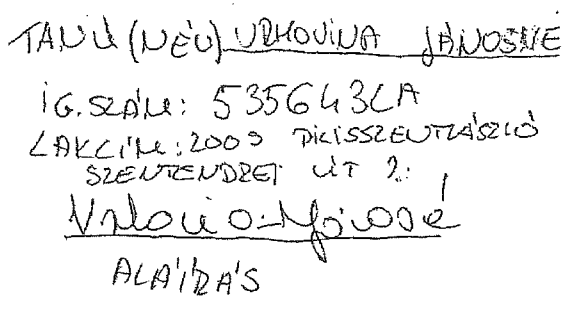 TANÚ (NÉV) VRHOVINA JÁNOSNÉ
IG. SZÁM: 535643LA
LAKCÍM: 2009 PILISSZENTLÁSZLÓ
SZENTENDREI ÚT 2.
Vrhovina Jánosné
ALÁÍRÁS